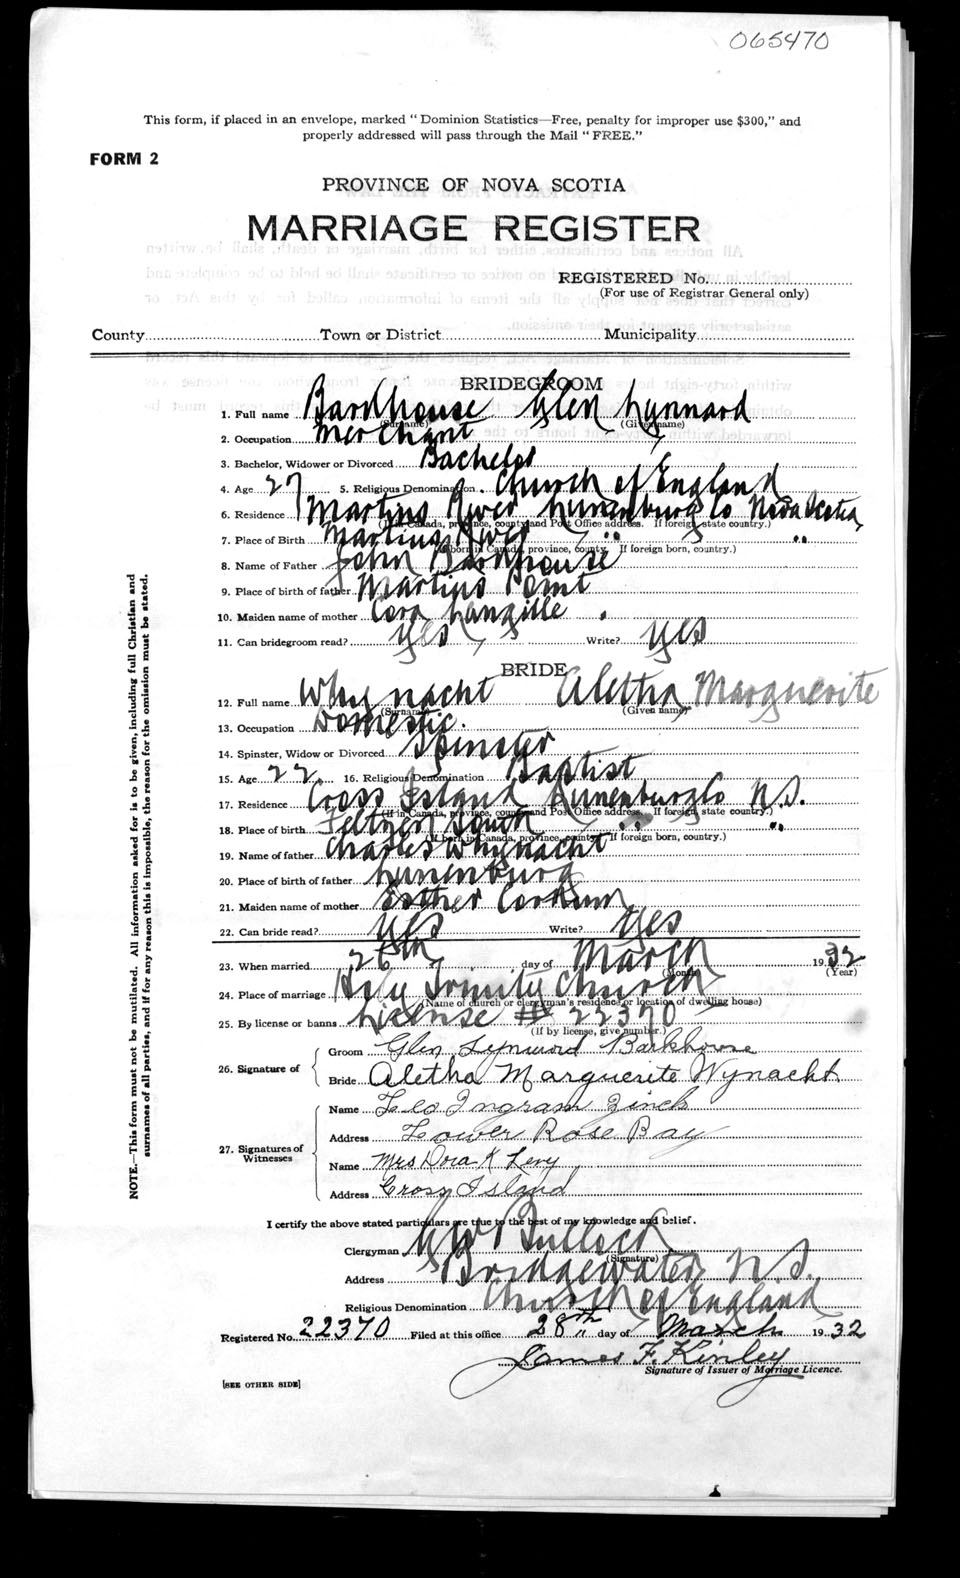 065470
This form, if placed in an envelope, marked "Dominion Statistics—Free, penalty for improper use $300," and
properly addressed will pass through the Mail "FREE."
FORM 2
PROVINCE OF NOVA SCOTIA
MARRIAGE REGISTER
REGISTERED No.
(For use of Registrar General only)
County Town or District Municipality
BRIDEGROOM
1. Full name Barkhouse Glen Lynnard
(Surname) (Given name)
2. Occupation Merchant
3. Bachelor, Widower or Divorced Bachelor
4. Age 27 5. Religious Denomination Church of England
6. Residence Martins River Lunenburg Co Nova Scotia
(If in Canada, province, county and Post Office address. If foreign, state country.)
7. Place of Birth Martins River " "
(If born in Canada, province, county. If foreign born, country.)
8. Name of Father John Barkhouse
9. Place of birth of father Martins Point
10. Maiden name of mother Cora Langille
11. Can bridegroom read? Yes Write? Yes
BRIDE
12. Full name Whynacht Aletha Marguerite
(Surname) (Given name)
13. Occupation Domestic.
14. Spinster, Widow or Divorced Spinster
15. Age 22 16. Religious Denomination Baptist
17. Residence Cross Island Lunenburg Co N.S.
(If in Canada, province, county and Post Office address. If foreign, state country.)
18. Place of birth Feltzen South " "
(If born in Canada, province, county. If foreign born, country.)
19. Name of father Charles Whynacht
20. Place of birth of father Lunenburg
21. Maiden name of mother Esther Corkum
22. Can bride read? Yes Write? Yes
23. When married 26th day of March 1932
(Month) (Year)
24. Place of marriage Holy Trinity Church
(Name of church or clergyman's residence or location of dwelling house)
25. By license or banns License # 22370
(If by license, give number.)
26. Signature of Groom Glen Lynword Barkhouse
Bride Aletha Marguerite Wynacht
27. Signatures of Witnesses Name Leo Ingram Zinck
Address Lower Rose Bay
Name Mrs Dora K Levy
Address Cross Island
I certify the above stated particulars are true to the best of my knowledge and belief.
Clergyman Bullock
(Signature)
Address Bridgewater N.S.
Religious Denomination Church of England
Registered No. 22370 Filed at this office 28th day of March 1932
James F. Kinley
Signature of Issuer of Marriage Licence.
[SEE OTHER SIDE]
NOTE.—This form must not be mutilated. All information asked for is to be given, including full Christian and
surnames of all parties, and if for any reason this is impossible, the reason for the omission must be stated.